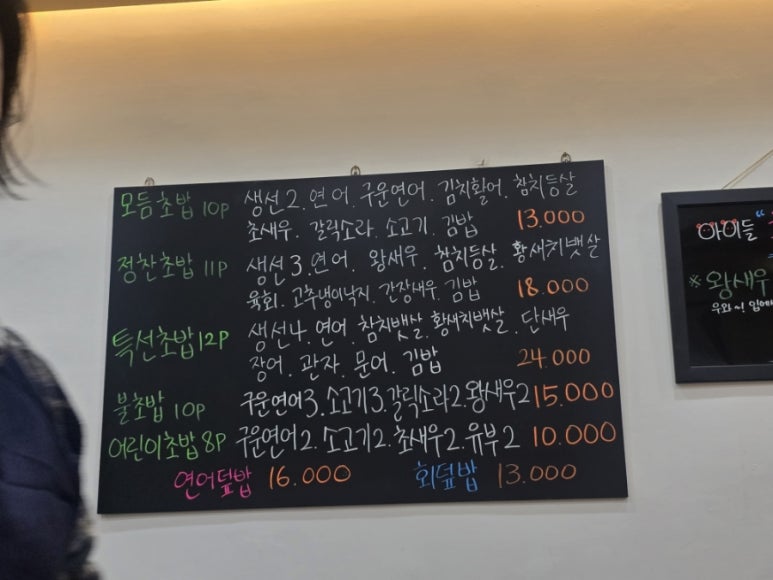 모듬초밥 10P 생선2. 연어. 구운연어. 김치활어. 참치등살
초새우. 갈릭소라. 소고기. 김밥 13.000
정찬초밥 11P 생선3. 연어. 왕새우. 참치등살. 황새치뱃살
육회. 고추냉이낙지. 간장새우. 김밥 18.000
특선초밥 12P 생선4. 연어. 참치뱃살. 황새치뱃살. 단새우
장어. 관자. 문어. 김밥 24.000
불초밥 10P 구운연어3. 소고기3. 갈릭소라2. 왕새우2 15.000
어린이초밥 8P 구운연어2. 소고기2. 초새우2. 유부2 10.000
연어덮밥 16.000 회덮밥 13.000
아이들 "
※왕새우
우와~!